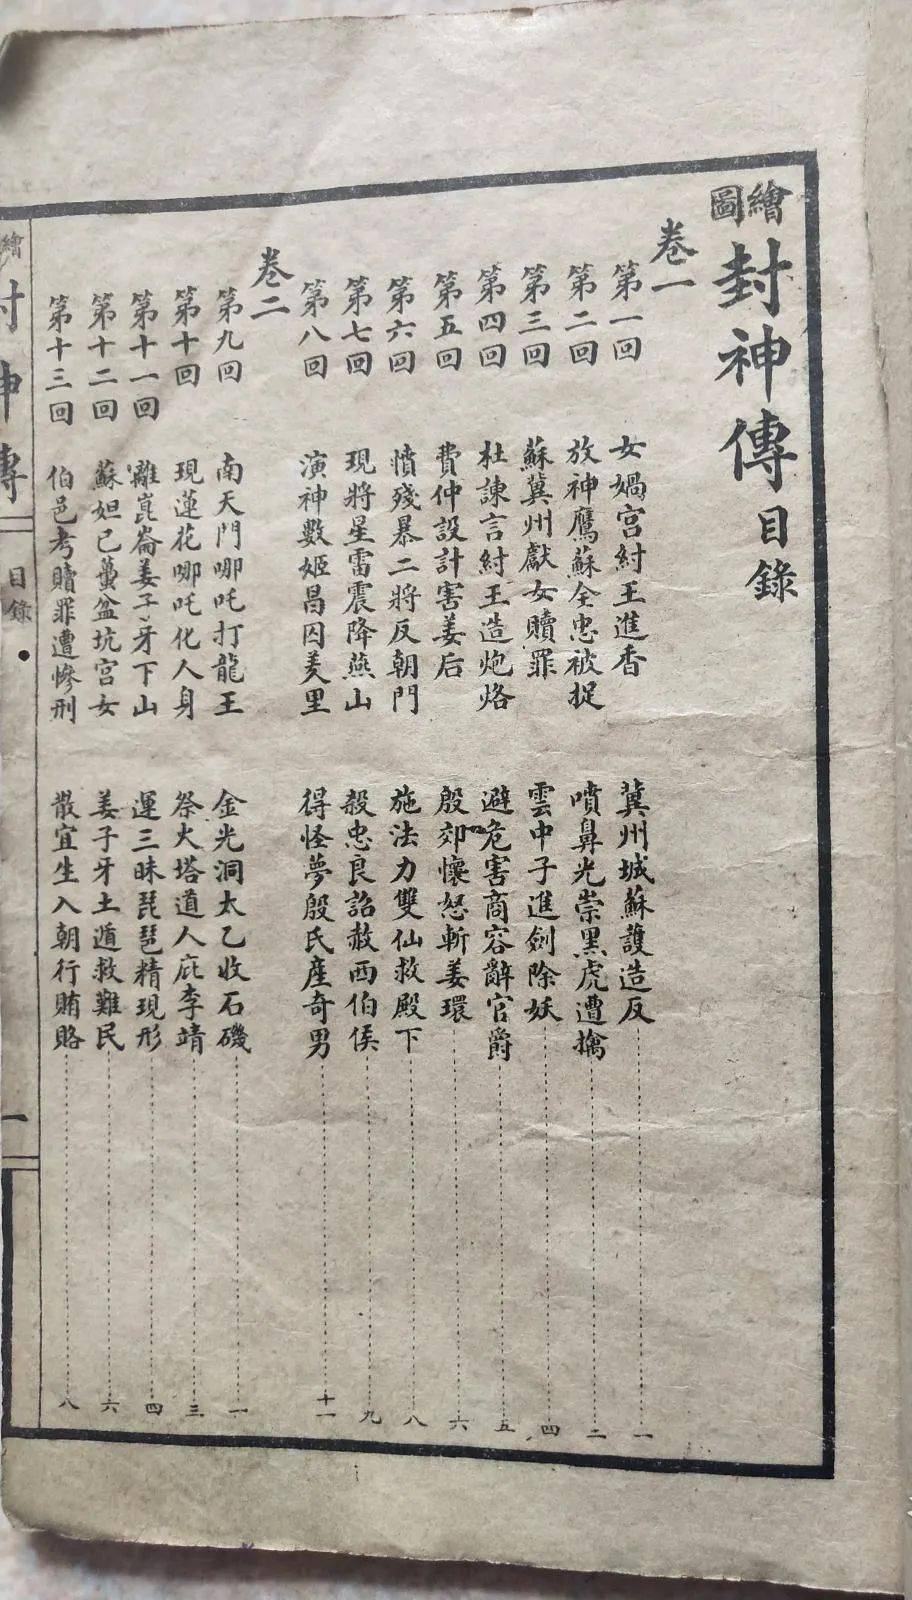 繪圖封神傳目錄
卷一
第一回 女媧宮紂王進香 冀州城蘇護造反 一
第二回 放神鷹蘇全忠被捉 噴鼻光崇黑虎遭擒 二
第三回 蘇冀州獻女贖罪 雲中子進劍除妖 四
第四回 杜諫言紂王造炮烙 避危害商容辭官爵 五
第五回 費仲設計害姜后 殷郊懷怒斬姜環 六
第六回 憤殘暴二將反朝門 施法力雙仙救殿下 八
第七回 現將星雷震降燕山 殺忠良詔赦西伯侯 九
第八回 演神數姬昌囚羑里 得怪夢殷氏產奇男 十一
卷二
第九回 南天門哪吒打龍王 金光洞太乙收石磯 一
第十回 現蓮花哪吒化人身 祭火塔道人庇李靖 三
第十一回 離崑崙姜子牙下山 運三昧琵琶精現形 四
第十二回 蘇妲己蠆盆坑宮女 姜子牙土遁救難民 六
第十三回 伯邑考贖罪遭慘刑 散宜生入朝行賄賂 八
繪
封神傳
目錄
一